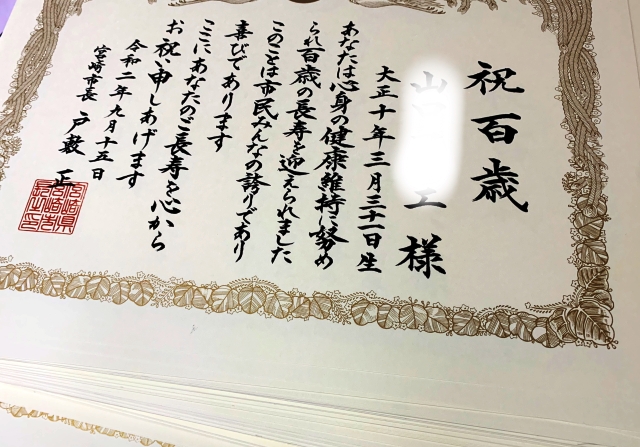 祝百歳
山 工 様
大正十年三月三十一日生
あなたは心身の健康維持に努め
られ百歳の長寿を迎えられました
このことは市民みんなの誇りであり
喜びであります
ここにあなたのご長寿を心から
お祝い申しあげます
令和二年九月十五日
宮崎市長 戸敷 正